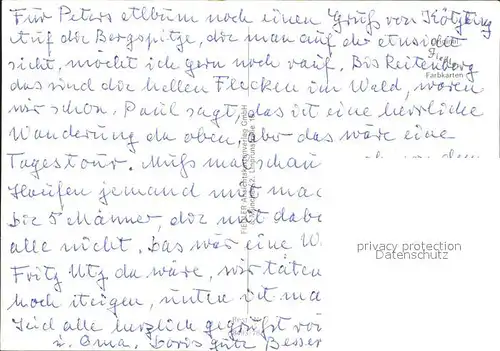 Für Peters Album noch einen Gruß von Kötzting
Auf die Bergspitze, die man auf der Ansicht
sieht, möcht ich gern noch rauf. Bis Reitenberg
das sind die hellen Flecken im Wald, waren
wir schon. Paul sagt, das ist eine herrliche
Wanderung da oben, aber das wäre eine
Tagestour. Muß mal schau
Haufen jemand mit mac
Die 5 Männer, die mit dabe
alle nicht. Das wär eine W
Fritz Utz da wäre, wir täten
hoch steigen, unten ist ma
Seid alle herzlich gegrüßt von
u. Oma. Doris gute Besser
Farbkarten
privacy protection
Datenschutz